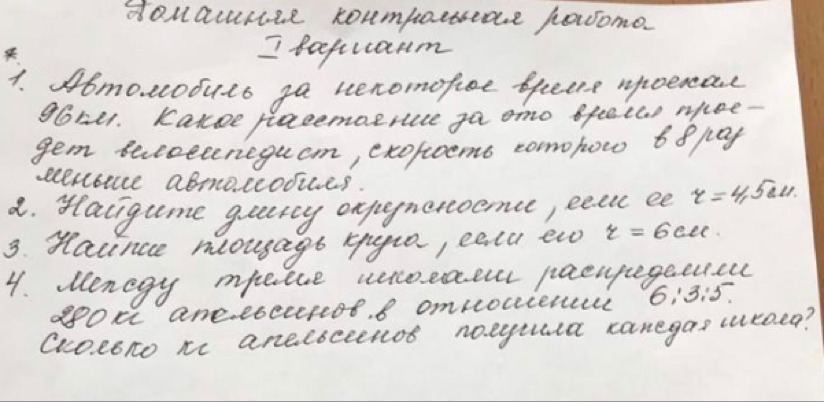 Домашняя контрольная работа
I вариант
*
1. Автомобиль за некоторое время проехал
96 км. Какое расстояние за это время прое-
дет велосипедист, скорость которого в 8 раз
меньше автомобиля.
2. Найдите длину окружности, если ее r = 4,5 см.
3. Найти площадь круга, если его r = 6 см.
4. Между тремя школами распределили
280 кг апельсинов в отношении 6:3:5.
Сколько кг апельсинов получила каждая школа?